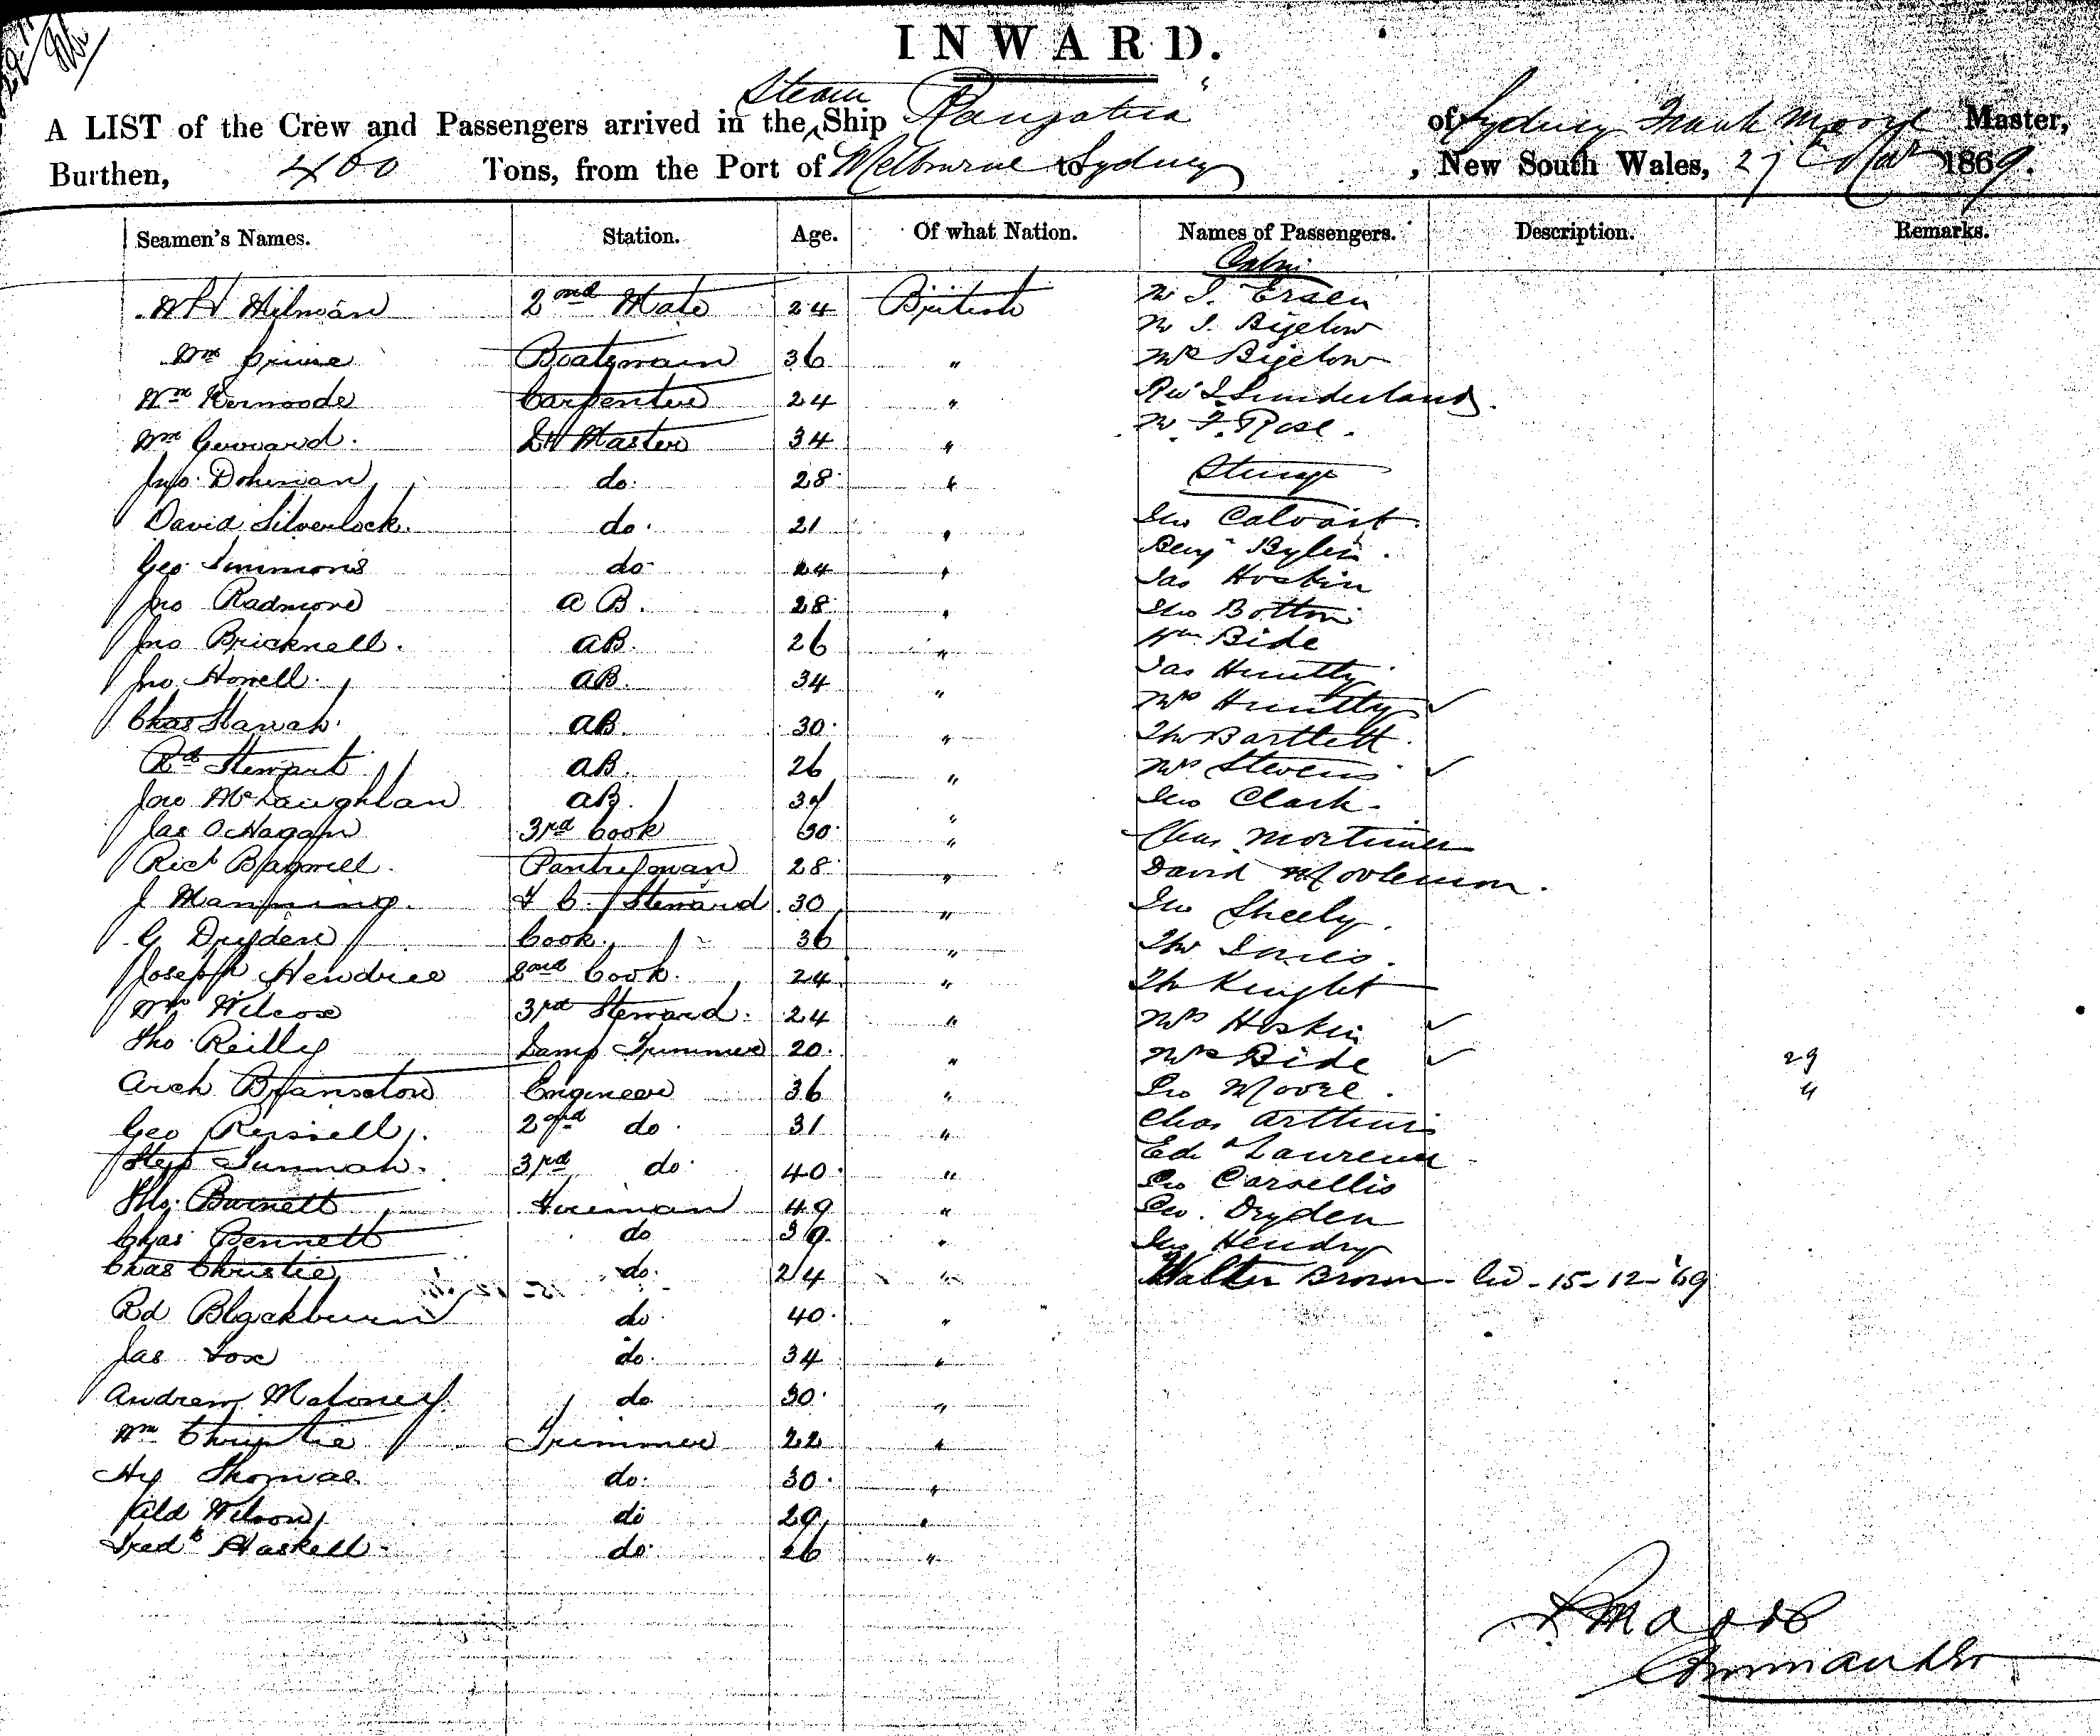 INWARD.
A LIST of the Crew and Passengers arrived in the Steam Ship "Rangatira" of Sydney Frank Master,
Burthen, 460 Tons, from the Port of Melbourne to Sydney, New South Wales, 27 1869.
Seamen's Names. Station. Age. Of what Nation. Names of Passengers. Description. Remarks.
Cabin
W H Milman 2nd Mate 24 British Mr J.
Mr J. Bigelow
Wm Boatswain 36 " Mrs Bigelow
Wm Kermode Carpenter 24 " Revd J Sunderland.
Wm Gerrard. Lt Master 34 " Mr F. Rose.
Jno. do. 28 " Steerage
David Silverlock. do. 21 " Jno Calvart
Benj
Geo Simmons do 24 " Jas Hoskin
Jno Radmore A B. 28 " Jno Botton
Jno Bricknell. AB. 26 " Wm Bide
Jno Howell. AB. 34 " Jas Huntly
Mrs Huntly ✓
Chas AB. 30. " Thos Bartlett.
Rd Stewart AB. 26 " Mrs Stevens ✓
Jno McLaughlan AB. " Jno Clark.
Jas O Hagan 3rd Cook 30. " Chas Mortimer
Richd Bagwell. Pantryman 28 " David
J Manning. F C. Steward 30 " Jno Sheely.
G Dryden Cook. 36 " Thos
Joseph Hendrie 2nd Cook. 24 " Th Knight
Wm Wilcox 3rd Steward. 24 " Mrs Hoskin ✓
Tho. Reilly Lamp Trimmer 20. " Mrs Bide ✓ 29
Arch Engineer 36 " Geo Moore. 4
Geo Russell. 2nd do. 31 " Chas Arthur
Ed Laurence
3rd do. 40. " Geo
Tho. Burnett Fireman 49 " Geo. Dryden
Chas Bennett do 39. " Jno Hendry
Chas Christie do. 24 " Walter Brown - 15-12-'69
Rd Blackburn do. 40. "
Jas Fox do. 34 "
Andrew Maloney. do. 30. "
Wm Christie Trimmer 22 "
Hy Thomas do. 30. "
Ald Wilson do 29 "
Fredk Haskell do. 26 "
Commander